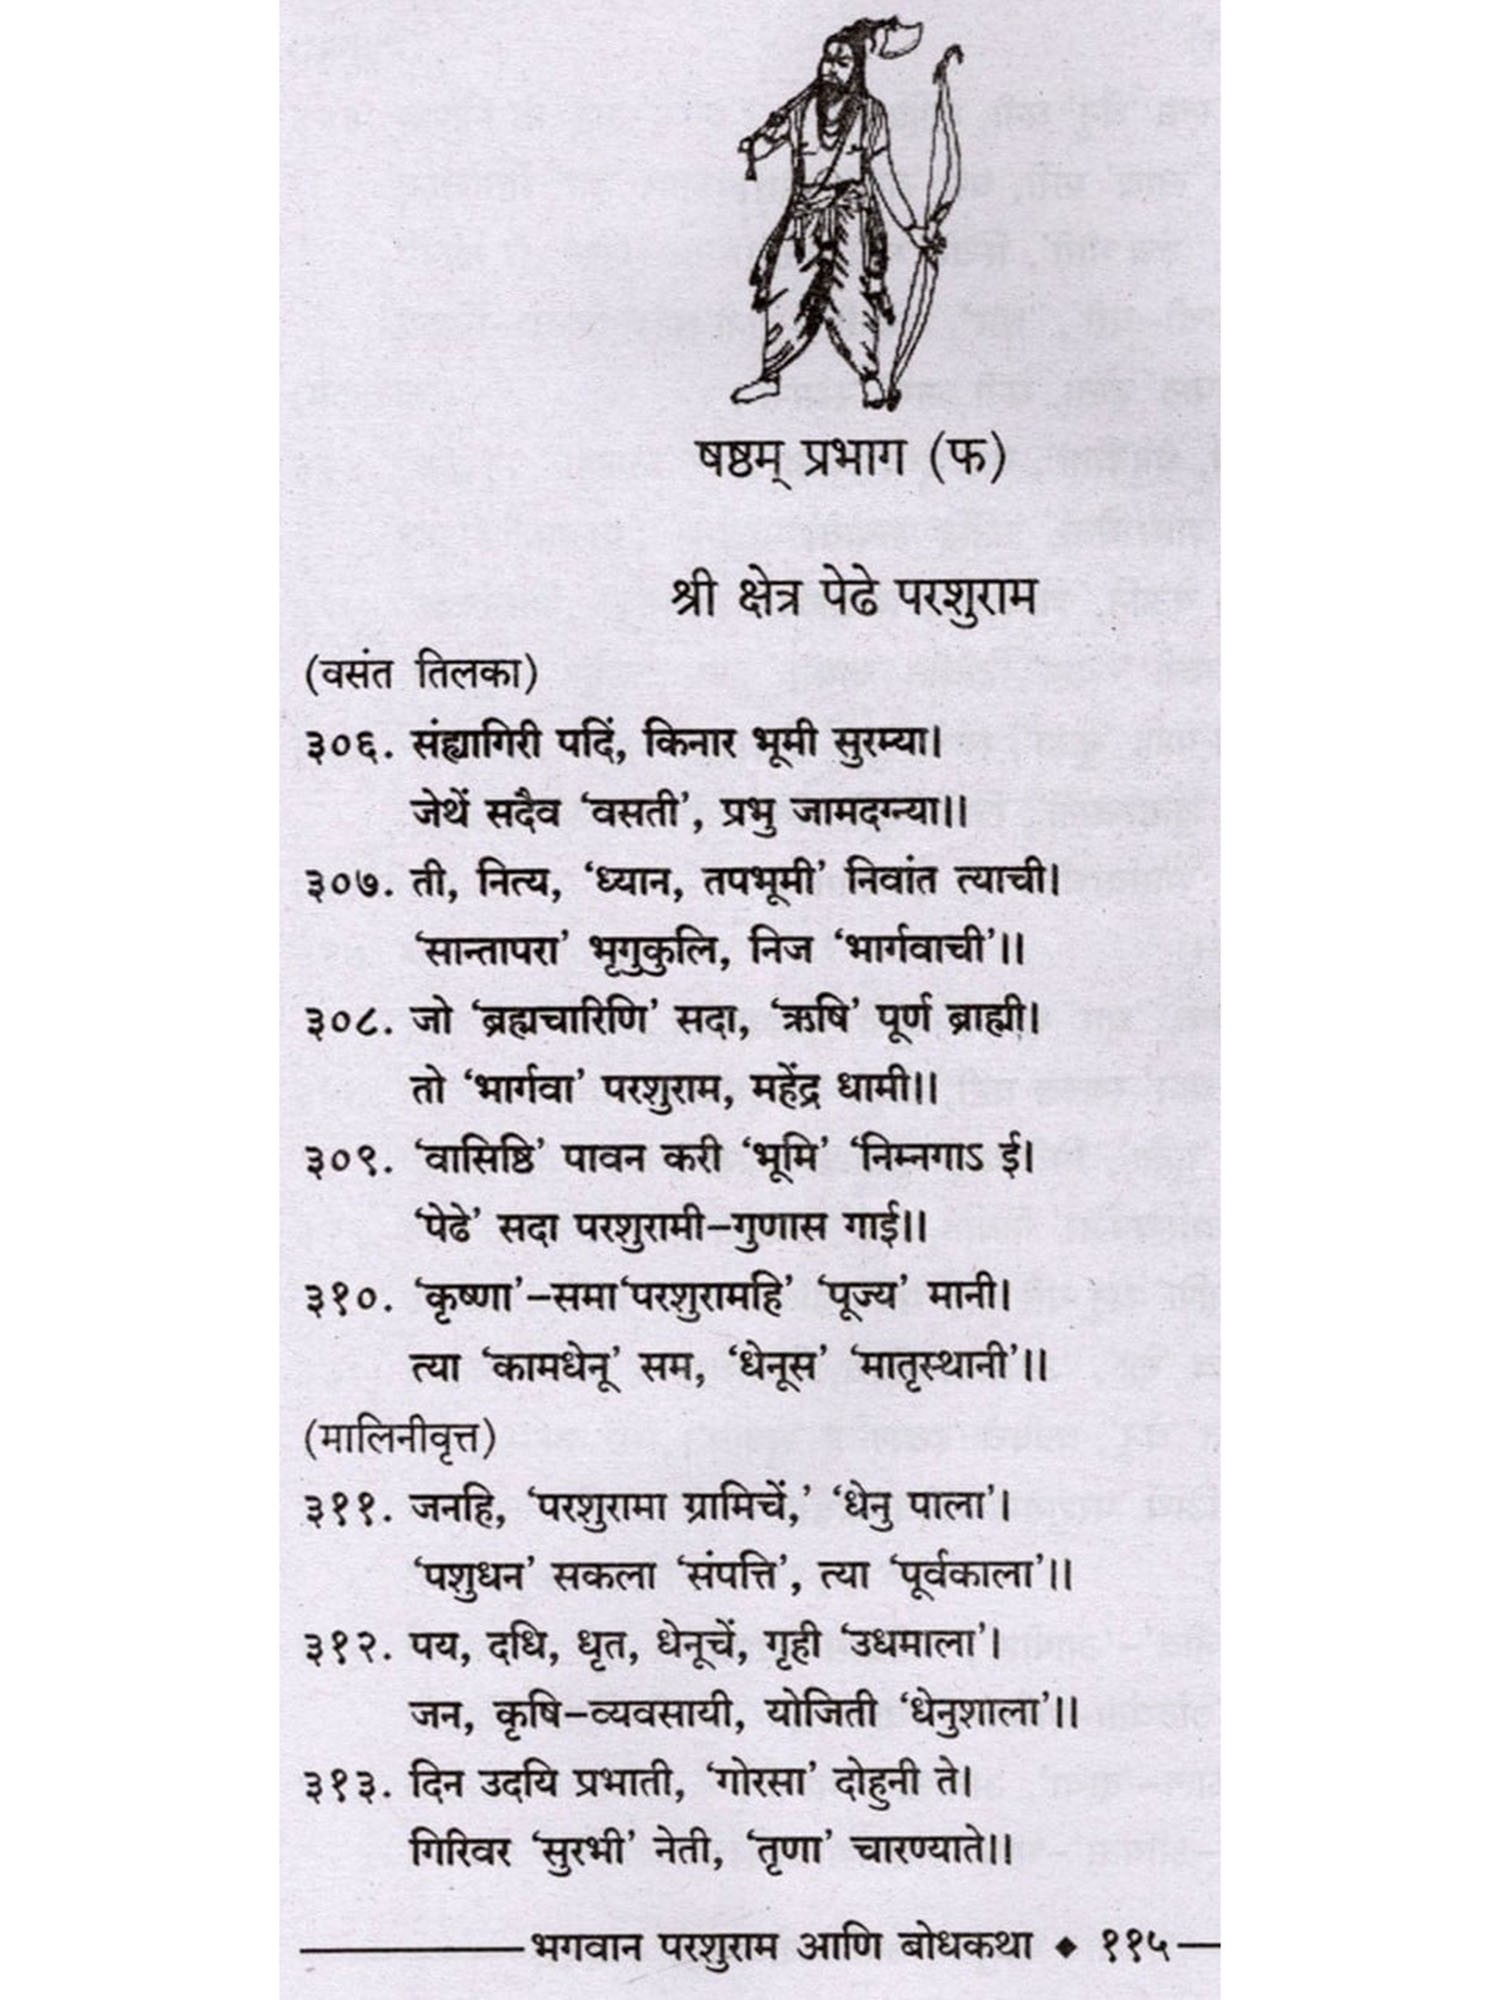 षष्ठम् प्रभाग (फ)
श्री क्षेत्र पेढे परशुराम
(वसंत तिलका)
३०६. संह्यागिरी पदिं, किनार भूमी सुरम्या।
जेथें सदैव ‘वसती’, प्रभु जामदग्न्या।।
३०७. ती, नित्य, ‘ध्यान, तपभूमी’ निवांत त्याची।
‘सान्तापरा’ भृगुकुलि, निज ‘भार्गवाची’।।
३०८. जो ‘ब्रह्मचारिणि’ सदा, ‘ऋषि’ पूर्ण ब्राह्मी।
तो ‘भार्गवा’ परशुराम, महेंद्र धामी।।
३०९. ‘वासिष्ठि’ पावन करी ‘भूमि’ ‘निम्नगाऽ ई।
‘पेढे’ सदा परशुरामी–गुणास गाई।।
३१०. ‘कृष्णा’–समा‘परशुरामहि’ ‘पूज्य’ मानी।
त्या ‘कामधेनू’ सम, ‘धेनूस’ ‘मातृस्थानी’।।
(मालिनीवृत्त)
३११. जनहि, ‘परशुरामा ग्रामिचें,’ ‘धेनु पाला’।
‘पशुधन’ सकला ‘संपत्ति’, त्या ‘पूर्वकाला’।।
३१२. पय, दधि, धृत, धेनूचें, गृही ‘उधमाला’।
जन, कृषि–व्यवसायी, योजिती ‘धेनुशाला’।।
३१३. दिन उदयि प्रभाती, ‘गोरसा’ दोहुनी ते।
गिरिवर ‘सुरभी’ नेती, ‘तृणा’ चारण्याते।।
भगवान परशुराम आणि बोधकथा ◆ ११५